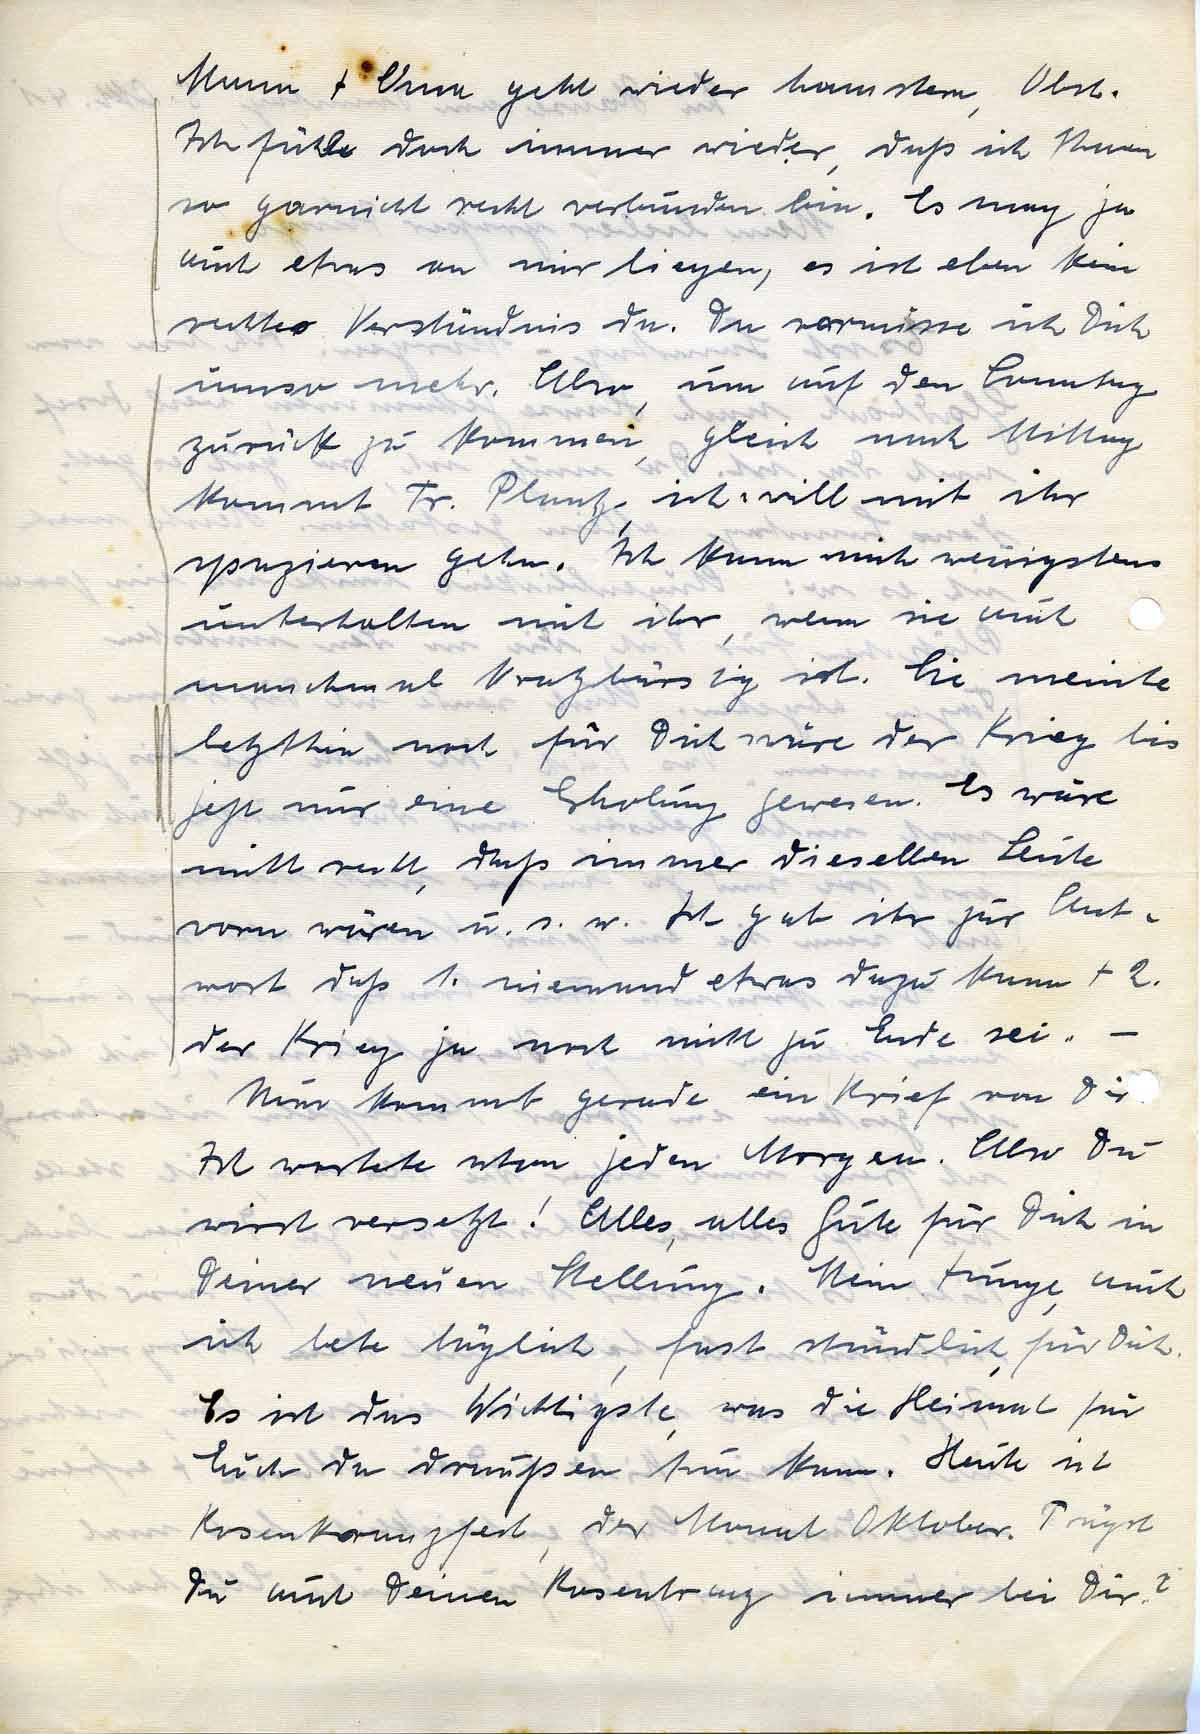 Mann + Oma geht wieder hamstern, Obst.
Ich fühle doch immer wieder, daß ich Ihnen
so garnicht recht verbunden bin. Es mag ja
auch etwas an mir liegen, es ist eben kein
rechtes Verständnis da. Da vermisse ich Dich
umso mehr. Also, um auf den Sonntag
zurück zu kommen, gleich nach Mittag
kommt Fr. Plantz, ich will mit ihr
spazieren gehn. Ich kann mich wenigstens
unterhalten mit ihr, wenn sie auch
manchmal kratzbürstig ist. Sie meinte
letzthin noch für Dich wäre der Krieg bis
jetzt nur eine Erholung gewesen. Es wäre
nicht recht, daß immer dieselben Leute
vorn wären u. s. w. Ich gab ihr zur Ant-
wort daß 1. niemand etwas dazu kann + 2.
der Krieg ja noch nicht zu Ende sei. –
Nun kommt gerade ein Brief von Dir.
Ich wartete schon jeden Morgen. Also Du
wirst versetzt! Alles, alles Gute für Dich in
Deiner neuen Stellung. Mein Junge, auch
ich bete täglich, fast stündlich, für Dich.
Es ist das Wichtigste, was die Heimat für
Euch da draußen tun kann. Heute ist
Rosenkranzfest, der Monat Oktober. Trägst
Du auch Deinen Rosenkranz immer bei Dir?